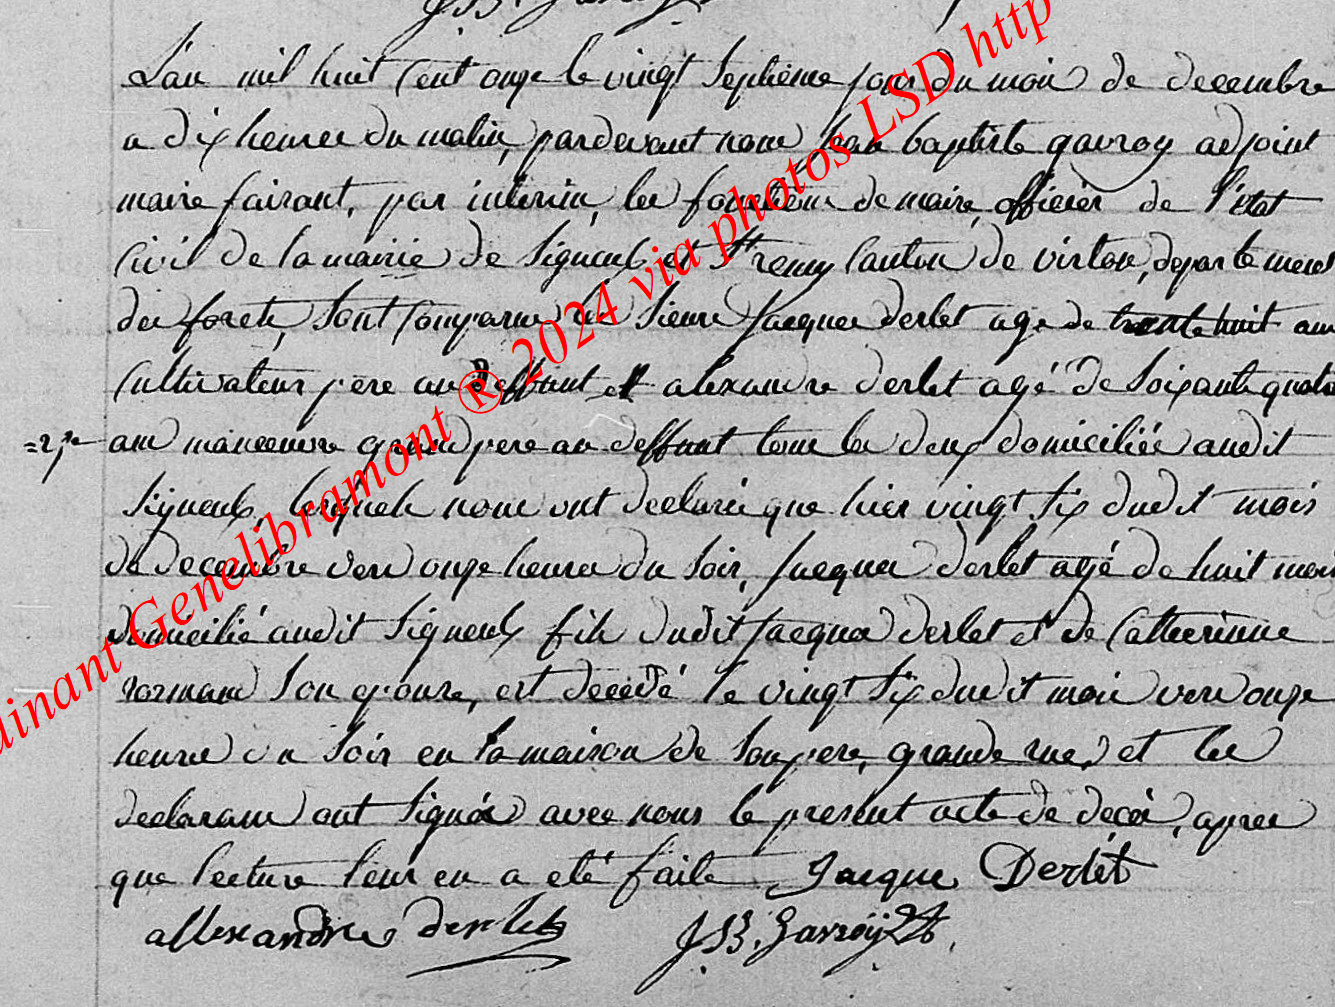 J.B. Gavroy
L'an mil huit cent onze le vingt septieme jour du mois de decembre
a dix heures du matin, pardevant nous jean baptiste gavroy adjoint
maire faisant, par interim, les fonctions de maire, officier de l'état
civil de la mairie de Signeulx et St remy Canton de virton, departement
des forets, sont comparus les sieurs jacques derlet age de trente huit ans
cultivateur pere au deffunt et alexandre derlet agé de soixante quatre
ans manoeuvre grand pere au deffunt tous les deux domiciliés audit
Signeulx, lesquels nous ont declaré que hier vingt six dudit mois
de decembre vers onze heures du soir, jacques derlet agé de huit mois
domicilié audit Signeulx fils dudit jacques derlet et de Catherinne
son epouse, est decedé le vingt six dudit mois vers onze
heures du soir en la maison de son pere, grande rue, et les
declarans ont signés avec nous le present acte de decès, apres
que lecture leur en a eté faite Jacque Derlet
allexandre derlet J.B. Gavroy
dinant Genelibramont ® 2024 via photos LSD http